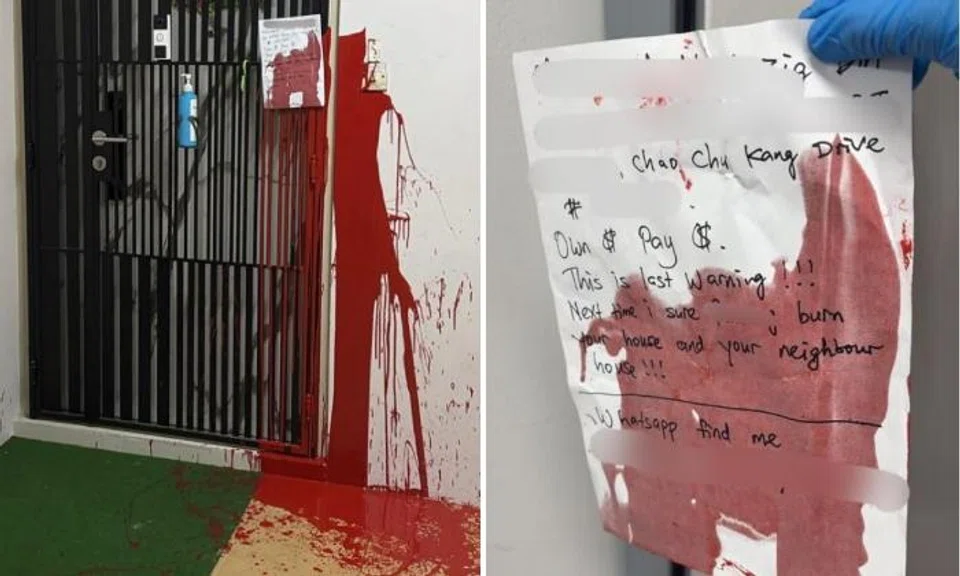 Choo Chu Kang Drive
#
Own $ Pay $.
This is last Warning !!!
Next time i sure burn
your house and your neighbour
house !!!
Whatsapp find me